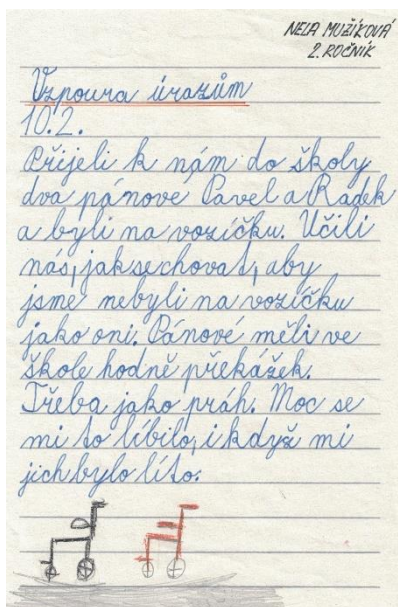 NELA MUŽÍKOVÁ
2. ROČNÍK
Vzpoura úrazům
10.2.
Přijeli k nám do školy
dva pánové Pavel a Radek
a byli na vozíčku. Učili
nás, jak se chovat, aby
jsme nebyli na vozíčku
jako oni. Pánové měli ve
škole hodně překážek.
Třeba jako práh. Moc se
mi to líbilo, i když mi
jich bylo líto.